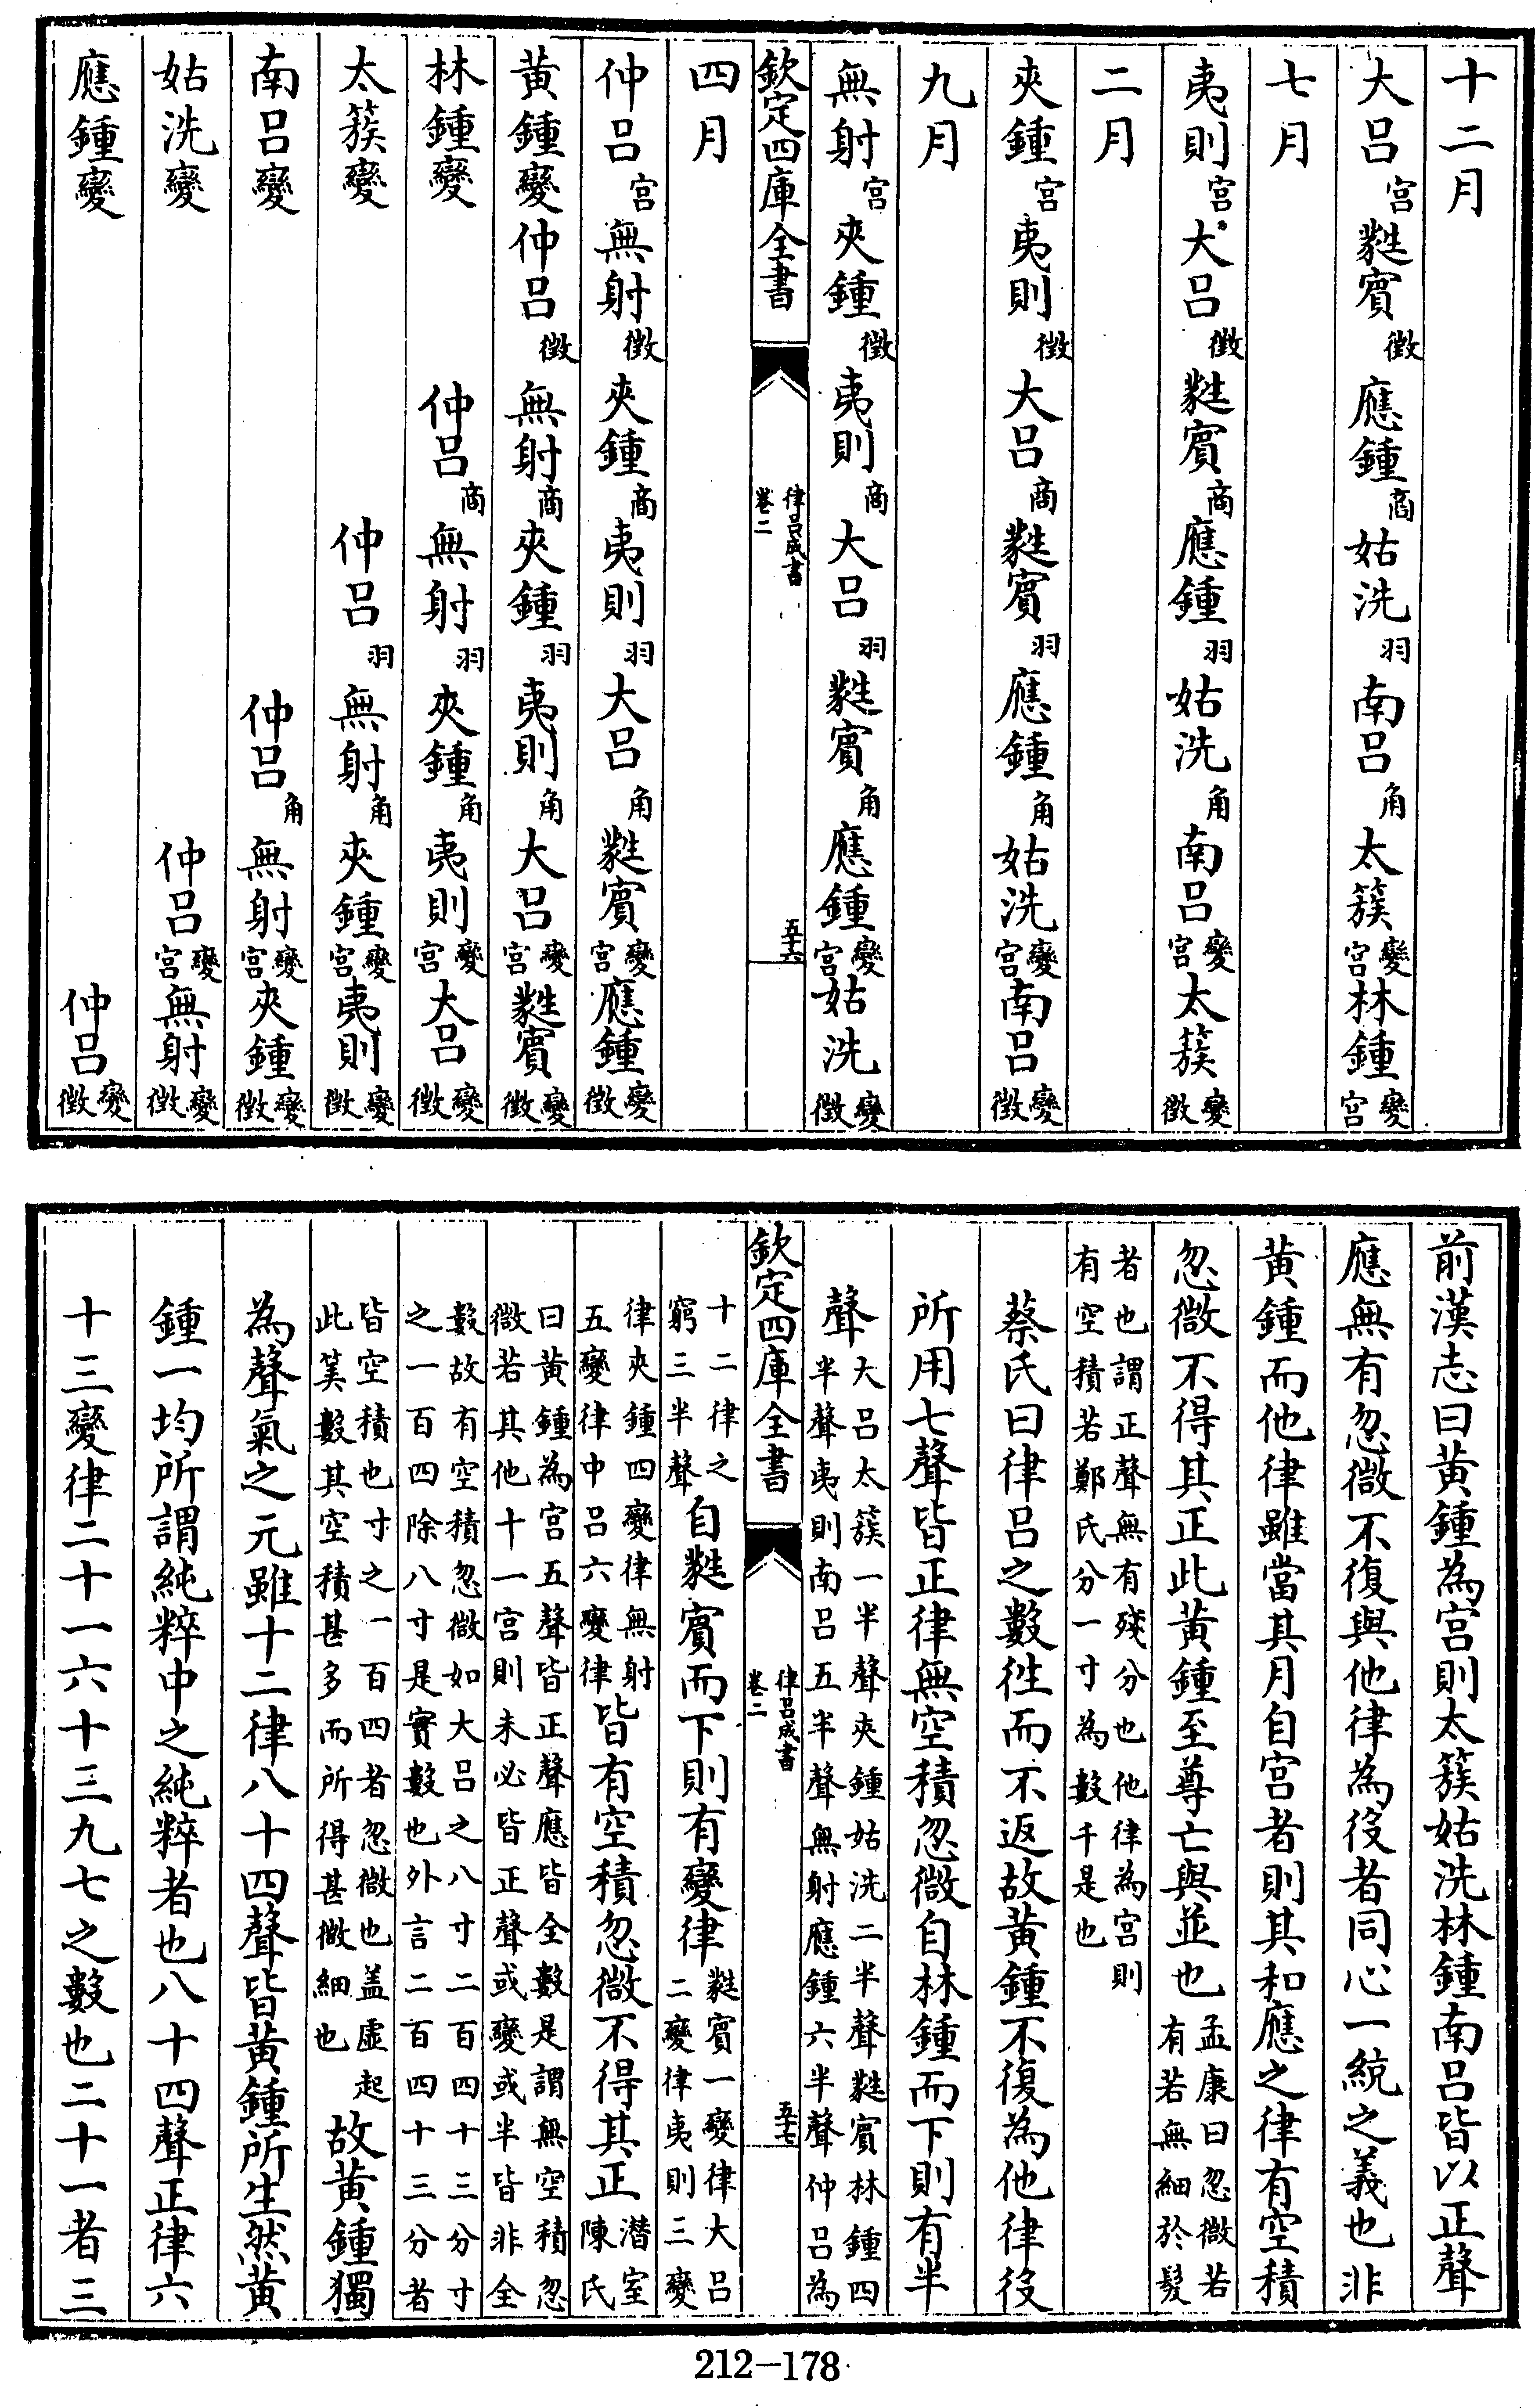 十二月
大吕宫蕤賔徵應鍾商姑洗羽南吕角太簇變宫林鍾變宫
七月
夷則宫大吕徵蕤賔商應鍾羽姑洗角南吕變宫太簇變徵
二月
夾鍾宫夷則徵大吕商蕤賔羽應鍾角姑洗變宫南吕變徵
九月
無射宫夾鍾徵夷則商大吕羽蕤賔角應鍾變宫姑洗變徵
欽定四庫全書 律吕成書卷二 五十六
四月
仲吕宫無射徵夾鍾商夷則羽大吕角蕤賔變宫應鍾變徵
黄鍾變仲吕徵無射商夾鍾羽夷則角大吕變宫蕤賔變徵
林鍾變 仲吕商無射羽夾鍾角夷則變宫大吕變徵
太簇變 仲吕羽無射角夾鍾變宫夷則變徵
南吕變 仲吕角無射變宫夾鍾變徵
姑洗變 仲吕變宫無射變徵
應鍾變 仲吕變徵
前漢志曰黄鍾為宫則太簇姑洗林鍾南吕皆以正聲
應無有忽微不復與他律為役者同心一統之義也非
黄鍾而他律雖當其月自宫者則其和應之律有空積
忽微不得其正此黄鍾至尊亡與並也孟康曰忽微若有若無細於髮
者也謂正聲無有殘分也他律為宫則有空積若鄭氏分一寸為數千是也
蔡氏曰律吕之數徃而不返故黄鍾不復為他律役
所用七聲皆正律無空積忽微自林鍾而下則有半
聲大吕太簇一半聲夾鍾姑洗二半聲蕤賔林鍾四半聲夷則南吕五半聲無射應鍾六半聲仲吕為
欽定四庫全書 律吕成書卷二 五十七
十二律之窮三半聲自蕤賔而下則有變律蕤賔一變律大吕二變律夷則三變
律夾鍾四變律無射五變律中吕六變律皆有空積忽微不得其正潜室陳氏
曰黄鍾為宫五聲皆正聲應皆全數是謂無空積忽微若其他十一宫則未必皆正聲或變或半皆非全
數故有空積忽微如大吕之八寸二百四十三分寸之一百四除八寸是實數也外言二百四十三分者
皆空積也寸之一百四者忽微也盖虚起此筭數其空積甚多而所得甚微細也故黄鍾獨
為聲氣之元雖十二律八十四聲皆黄鍾所生然黄
鍾一均所謂純粹中之純粹者也八十四聲正律六
十三變律二十一六十三九七之數也二十一者三
212—178